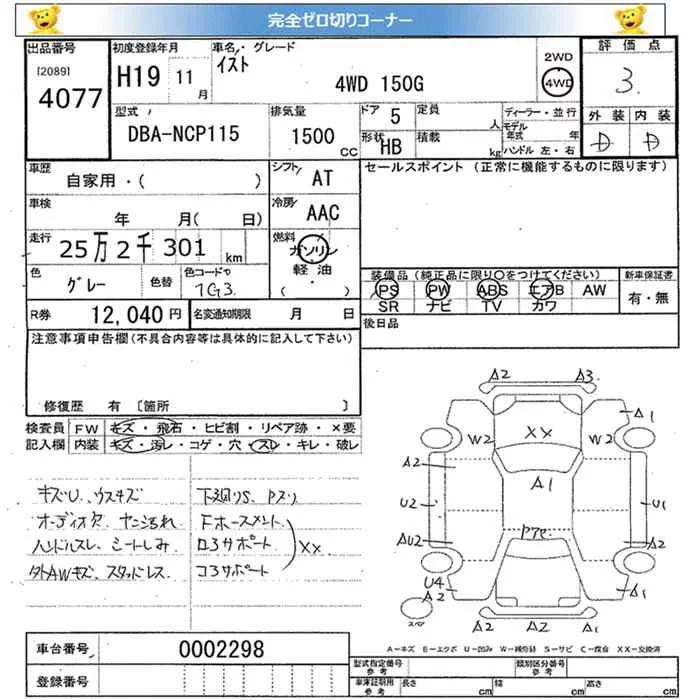 完全ゼロ切りコーナー
出品番号 初度登録年月 車名・グレード 評価点
[2089] 4077 H19 11月 イスト 4WD 150G 2WD 4WD 3.
型式 排気量 ドア 5 定員 人 ディーラー・並行 外装 内装
DBA-NCP115 1500 CC 形状 HB 積載 kg モデル年式 年 ハンドル 左・右 D D
車歴 自家用・( ) シフト AT セールスポイント (正常に機能するものに限ります)
車検 年 月( 日) 冷房 AAC
走行 25万2千301 km 燃料 ガソリン 軽油 ( ・ )
色 グレー 色替 色コード 1G3 装備品 (純正品に限り○をつけてください) 新車保証書
PS PW ABS エアB AW 有・無
SR ナビ TV カワ
R券 12,040円 名変通知期限 月 日 後日品
注意事項申告欄(不具合内容等は具体的に記入して下さい)
修復歴 有 [箇所 ]
検査員 FW キズ・飛石・ヒビ割・リペア跡・×要
記入欄 内装 キズ・汚レ・コゲ・穴・スレ・キレ・破レ
キズU、ウスキズ 下廻りS、Pスリ
オーディオ欠 ヤニ汚れ Fホースメント
ハンドルスレ、シートしみ ロアサポート XX
外AWキズ、スタッドレス コアサポート
A2 A3
A1
W2 XX W2
A2 A1
U2 U1
AU2 Pアセ A2
U4
A2 A1
スペア A2 A2 A1
A-キズ E-エクボ U-凹み W-補修跡 S-サビ C-腐食 XX-交換済
車台番号 0002298 型式指定番号 参考 類別区分番号 参考
登録番号 車庫証明用 参考 長さ cm 幅 cm 高さ cm